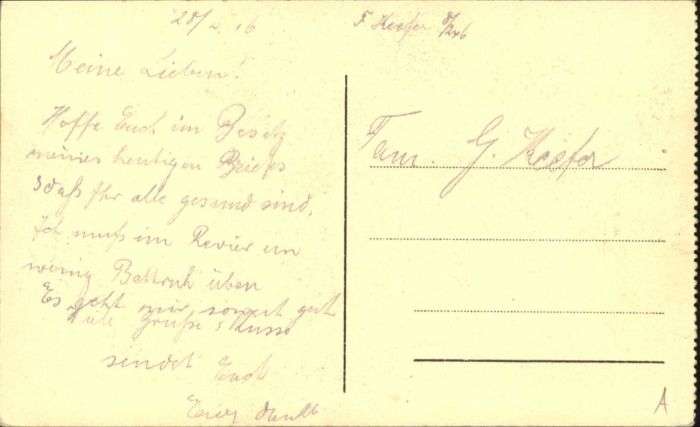 Meine Lieben!
Hoffe Euch im Besitz
meines heutigen Briefes
daß Ihr alle gesund sind,
Ich muß im Revier ein
wenig Bettruh üben
Es geht mir sonst gut
Viele Grüße & Küsse
sendet Euch
Fam. G. Keefer